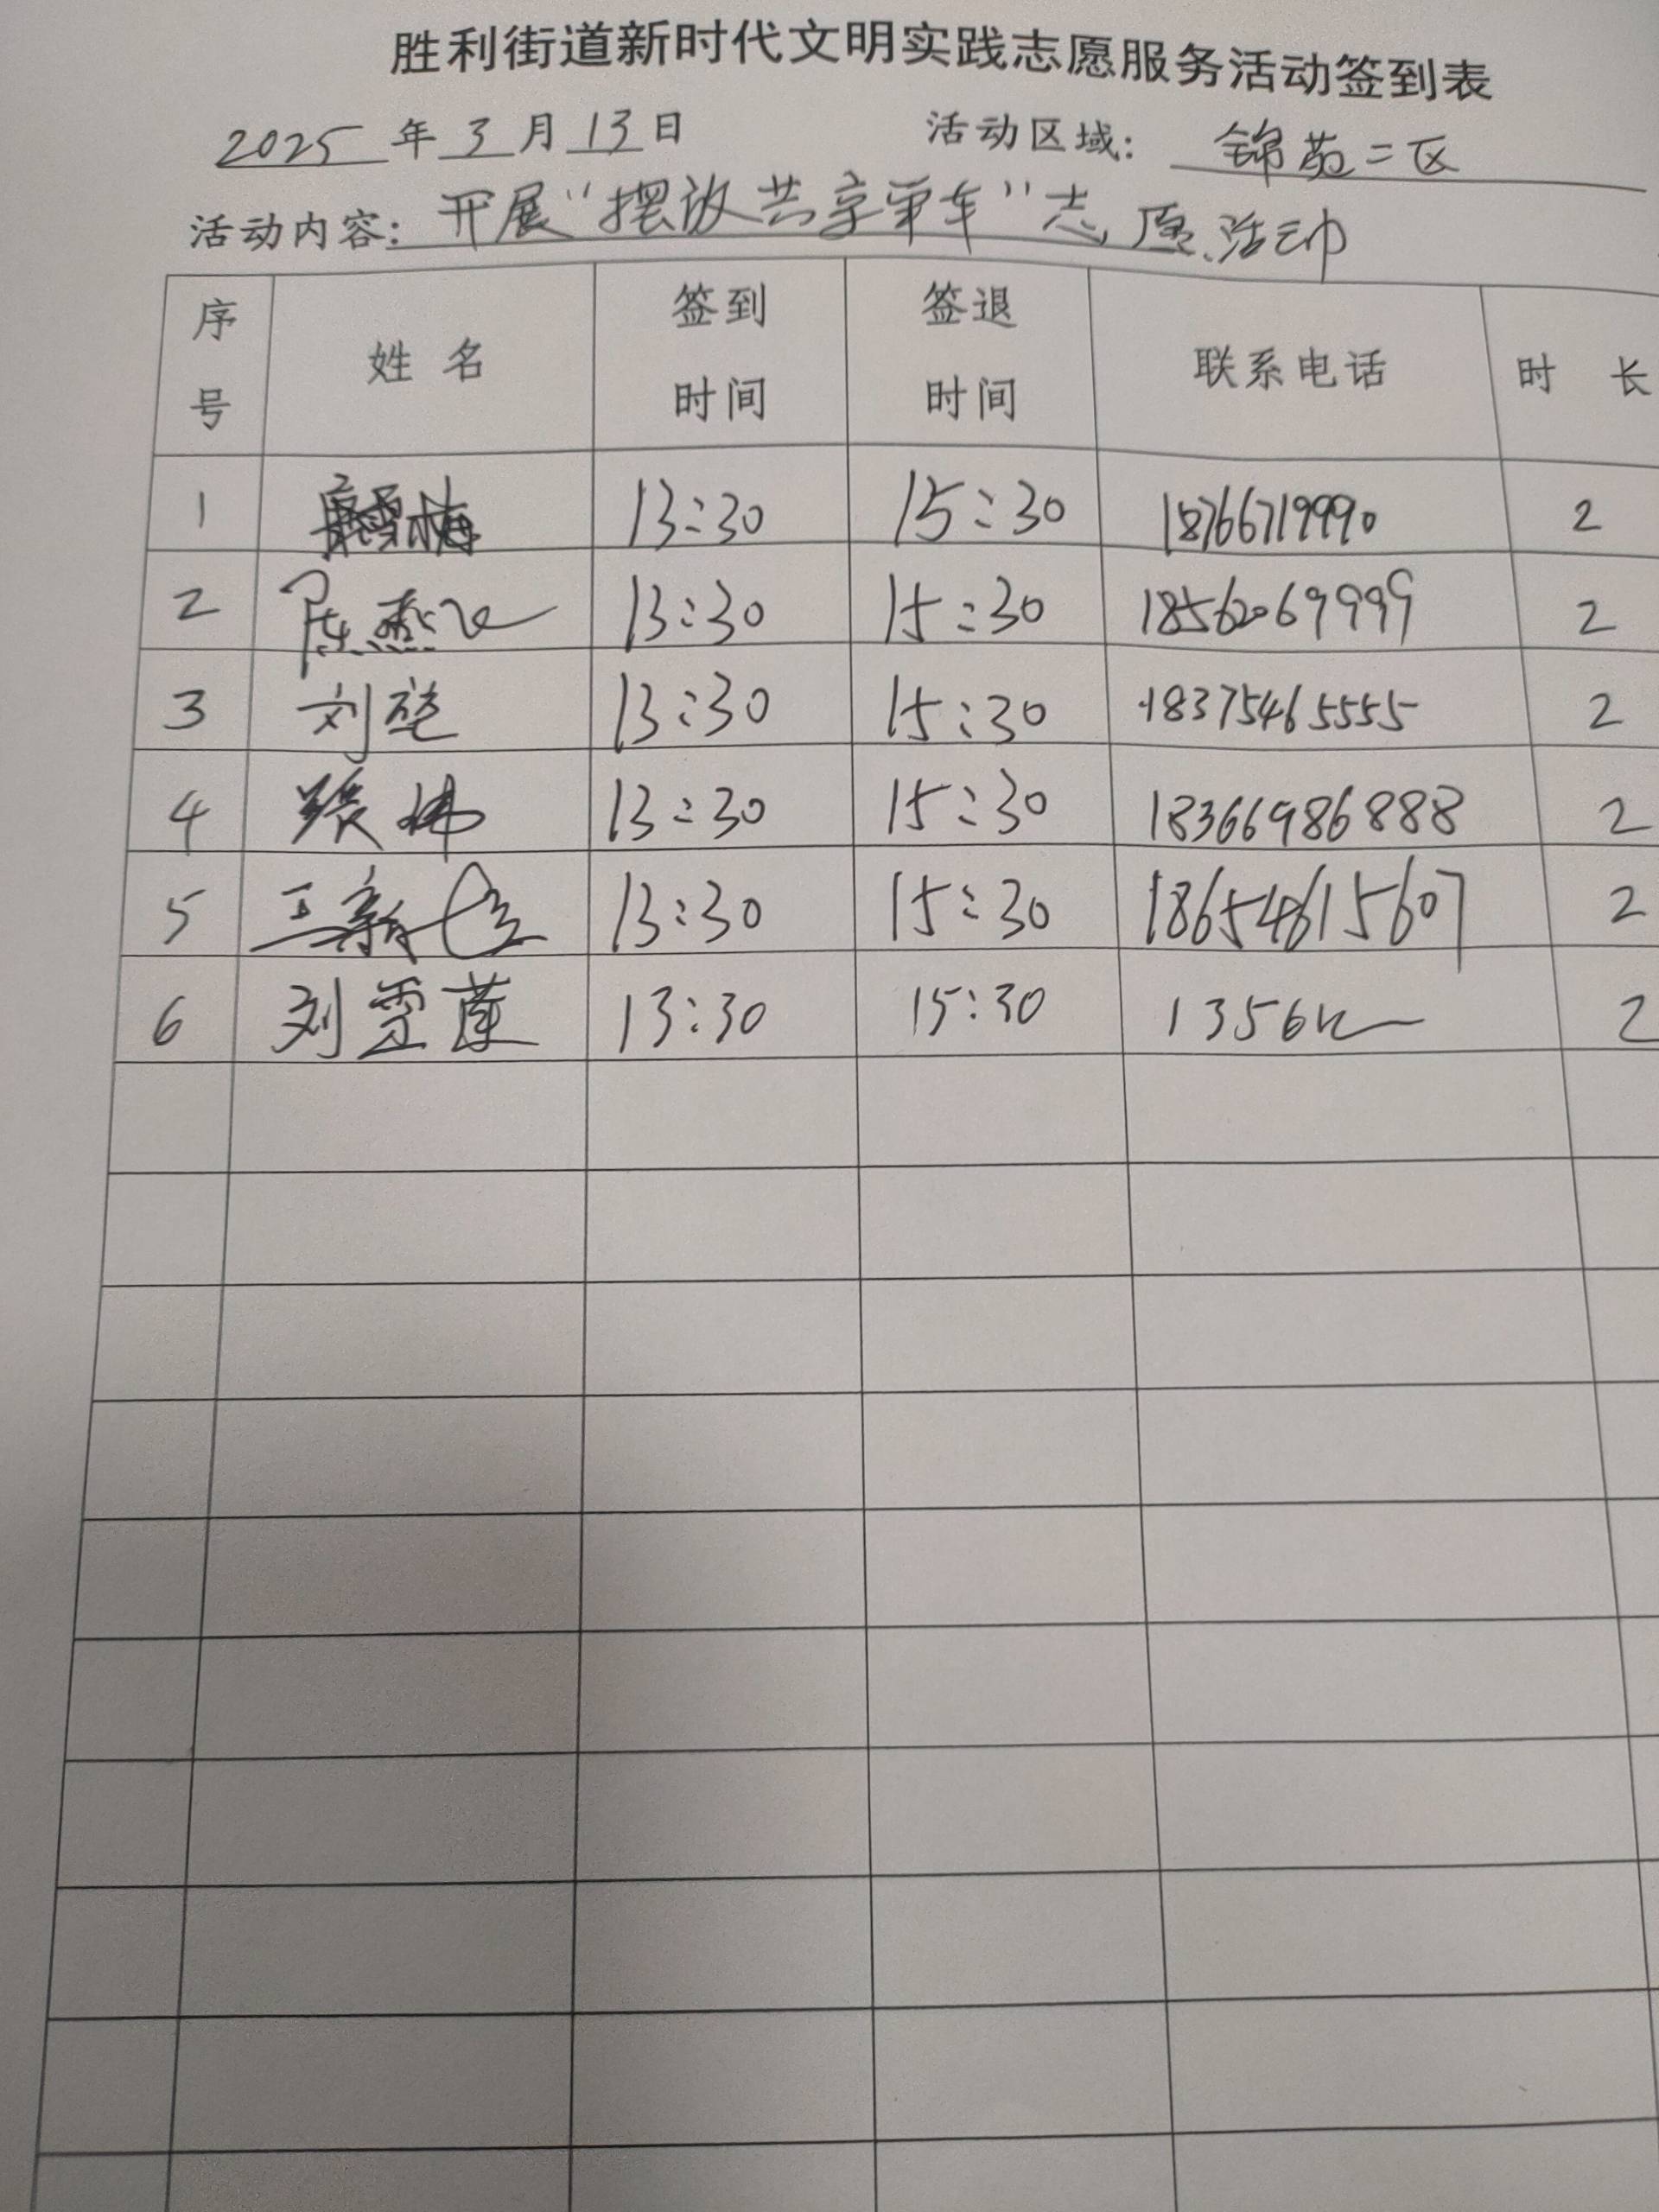 胜利街道新时代文明实践志愿服务活动签到表
2025年3月13日 活动区域：锦苑二区
活动内容：开展“摆放共享单车”志愿活动
序号 姓名 签到时间 签退时间 联系电话 时长
1 13:30 15:30 18766719990 2
2 陈燕飞 13:30 15:30 18562069999 2
3 刘 13:30 15:30 18375465555 2
4 张 13:30 15:30 18366986888 2
5 王新 13:30 15:30 18654615607 2
6 刘雪莲 13:30 15:30 1356 2